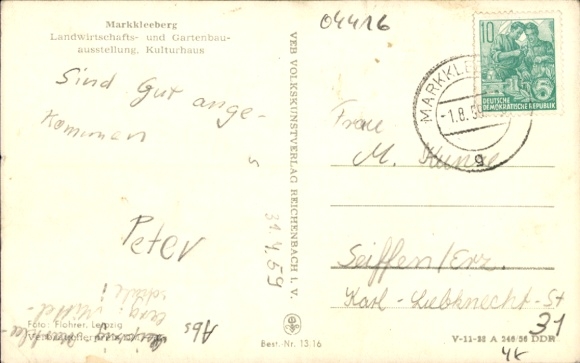 Markkleeberg
Landwirtschafts- und Gartenbau-
ausstellung, Kulturhaus
Sind gut ange-
kommen
Peter
Abs
Foto: Flohrer, Leipzig
VEB VOLKSKUNSTVERLAG REICHENBACH i. V.
31.4.59
Best.-Nr. 13 16
04416
10
DEUTSCHE
DEMOKRATISCHE REPUBLIK
MARKKLE
-1.8.58
g
Frau
M. Kunze
Seiffen/Erz.
Karl-Liebknecht-St
31
V-11-28 A 246 56 DDR